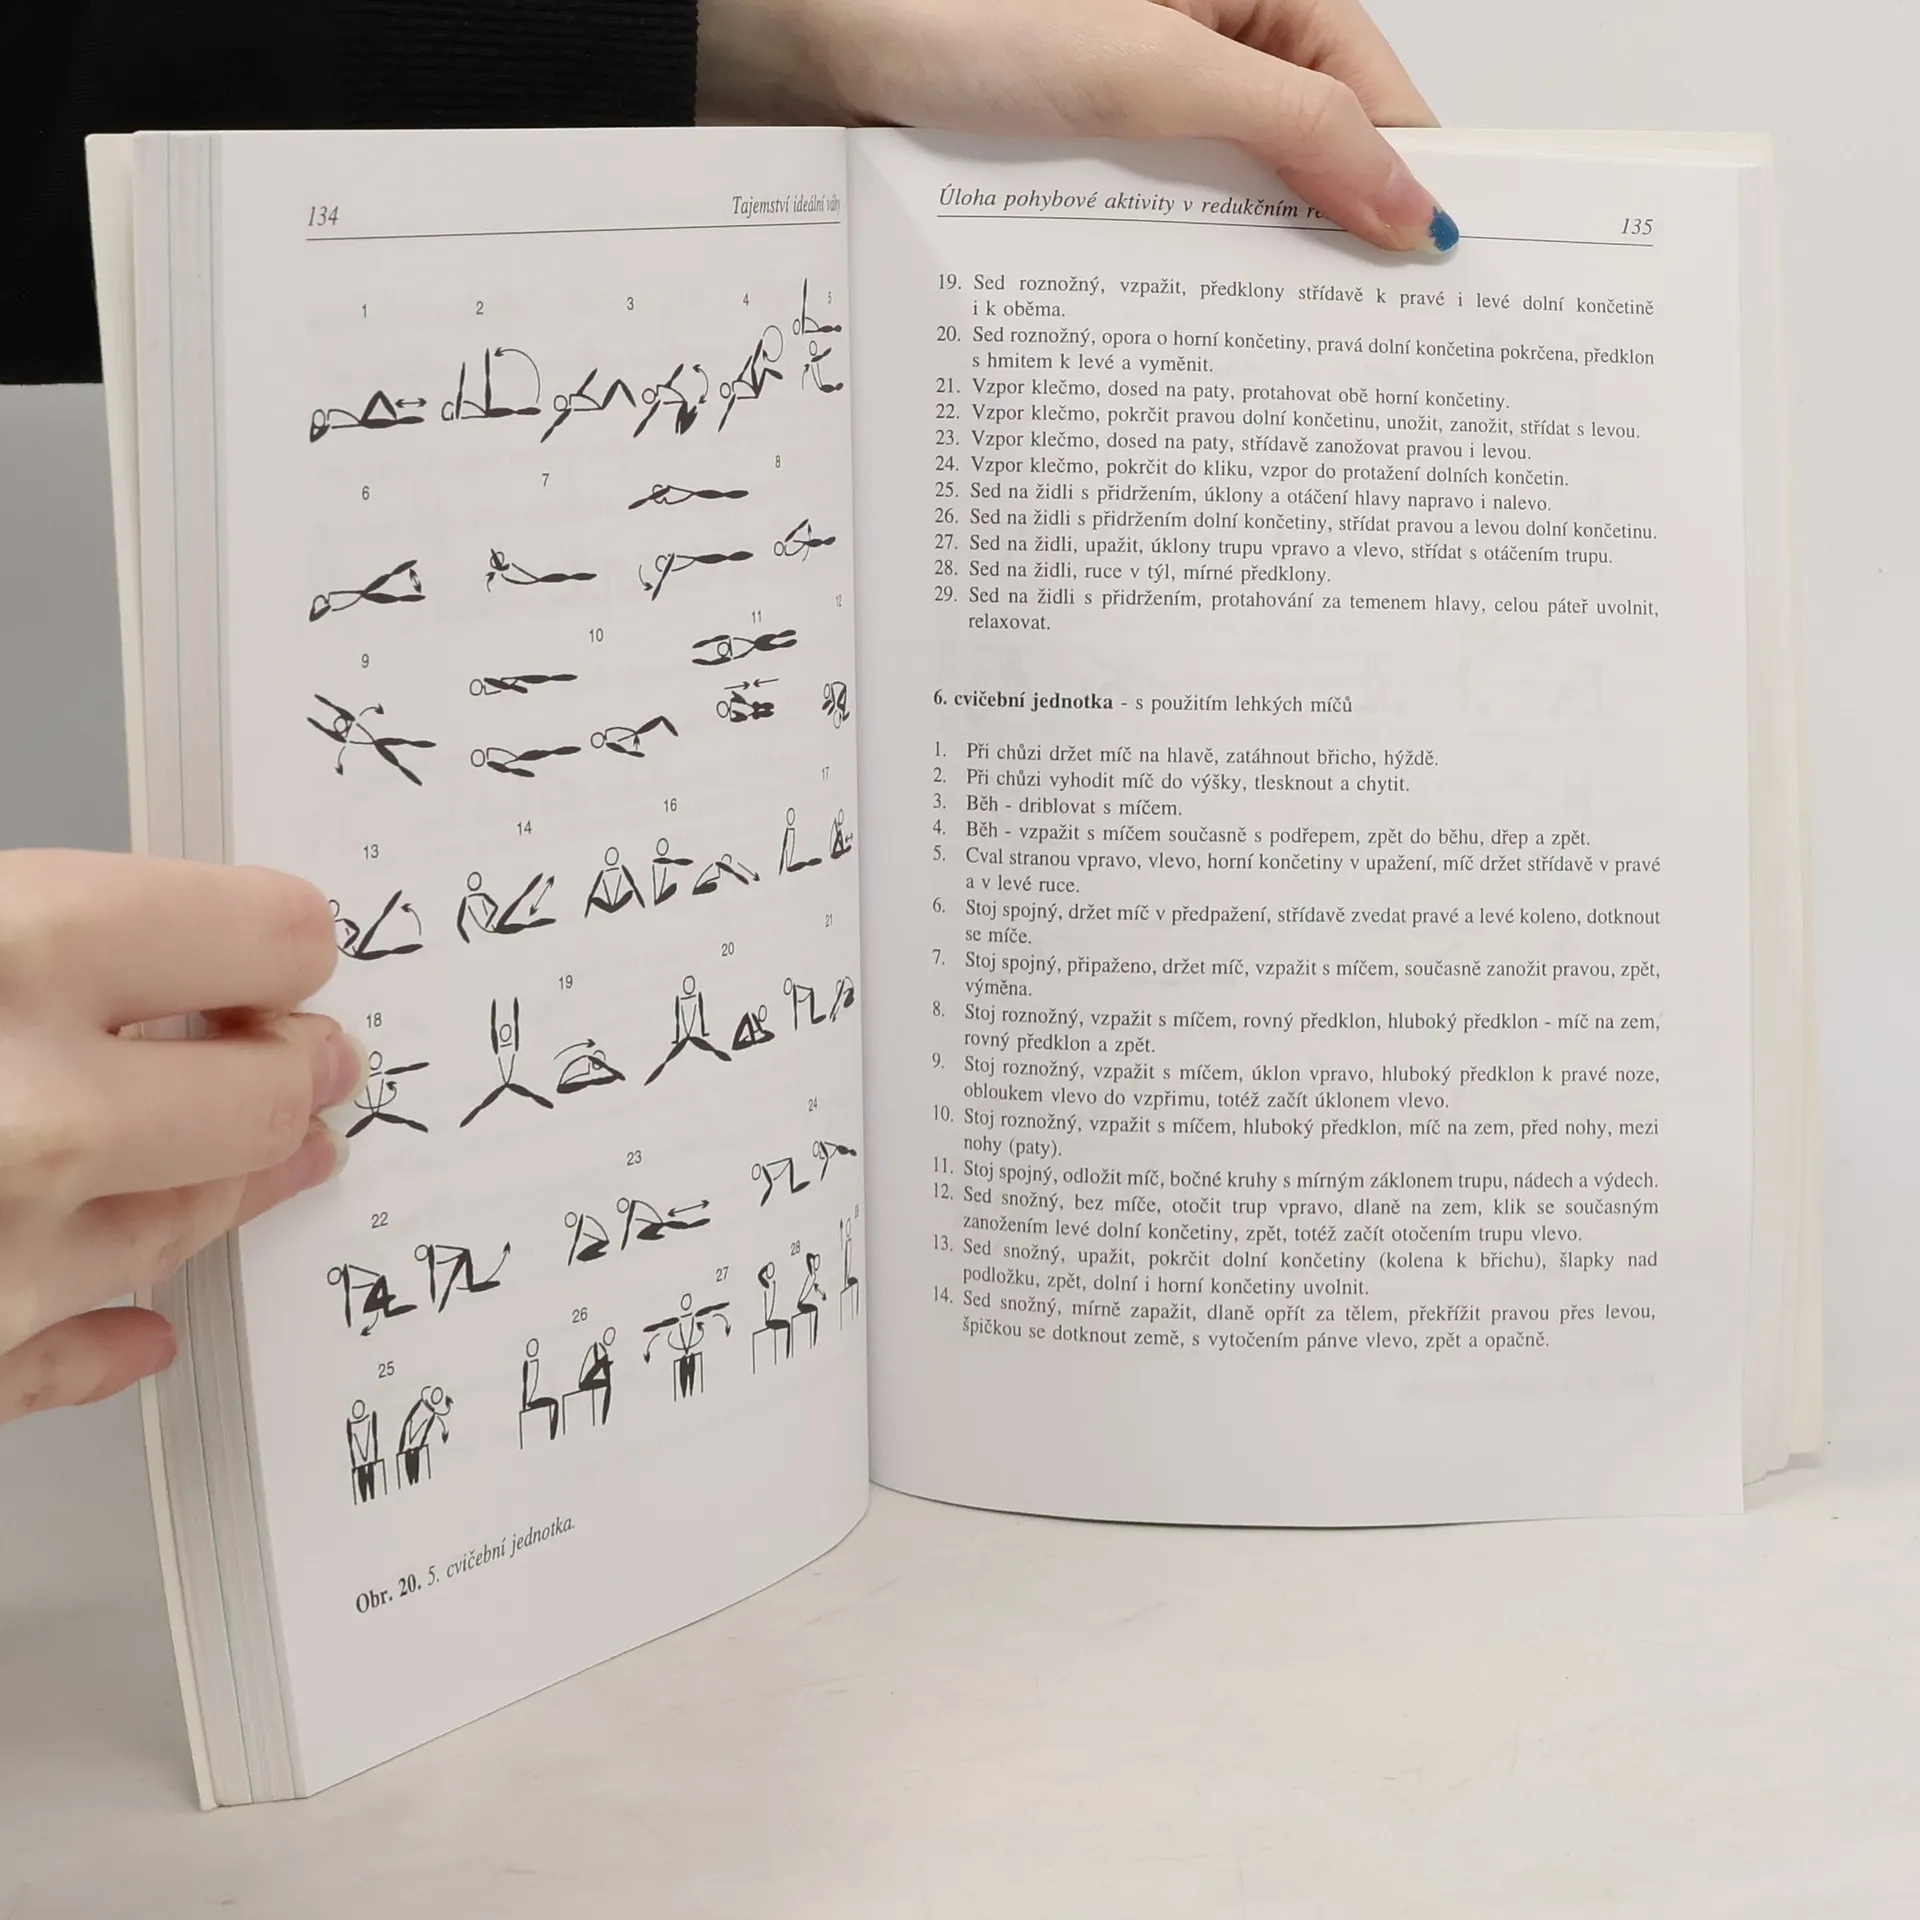 134
Tajemství ideální váhy
1 2 3 4 5
6 7 8
9 10 11 12
13 14 16 17
18 19 20 21
22 23 24
25 26 27 28
Obr. 20. 5. cvičební jednotka.
Úloha pohybové aktivity v redukčním
135
19. Sed roznožný, vzpažit, předklony střídavě k pravé i levé dolní končetině
i k oběma.
20. Sed roznožný, opora o horní končetiny, pravá dolní končetina pokrčena, předklon
s hmitem k levé a vyměnit.
21. Vzpor klečmo, dosed na paty, protahovat obě horní končetiny.
22. Vzpor klečmo, pokrčit pravou dolní končetinu, unožit, zanožit, střídat s levou.
23. Vzpor klečmo, dosed na paty, střídavě zanožovat pravou i levou.
24. Vzpor klečmo, pokrčit do kliku, vzpor do protažení dolních končetin.
25. Sed na židli s přidržením, úklony a otáčení hlavy napravo i nalevo.
26. Sed na židli s přidržením dolní končetiny, střídat pravou a levou dolní končetinu.
27. Sed na židli, upažit, úklony trupu vpravo a vlevo, střídat s otáčením trupu.
28. Sed na židli, ruce v týl, mírné předklony.
29. Sed na židli s přidržením, protahování za temenem hlavy, celou páteř uvolnit,
relaxovat.
6. cvičební jednotka - s použitím lehkých míčů
1. Při chůzi držet míč na hlavě, zatáhnout břicho, hýždě.
2. Při chůzi vyhodit míč do výšky, tlesknout a chytit.
3. Běh - driblovat s míčem.
4. Běh - vzpažit s míčem současně s podřepem, zpět do běhu, dřep a zpět.
5. Cval stranou vpravo, vlevo, horní končetiny v upažení, míč držet střídavě v pravé
a v levé ruce.
6. Stoj spojný, držet míč v předpažení, střídavě zvedat pravé a levé koleno, dotknout
se míče.
7. Stoj spojný, připaženo, držet míč, vzpažit s míčem, současně zanožit pravou, zpět,
výměna.
8. Stoj roznožný, vzpažit s míčem, rovný předklon, hluboký předklon - míč na zem,
rovný předklon a zpět.
9. Stoj roznožný, vzpažit s míčem, úklon vpravo, hluboký předklon k pravé noze,
obloukem vlevo do vzpřimu, totéž začít úklonem vlevo.
10. Stoj roznožný, vzpažit s míčem, hluboký předklon, míč na zem, před nohy, mezi
nohy (paty).
11. Stoj spojný, odložit míč, bočné kruhy s mírným záklonem trupu, nádech a výdech.
12. Sed snožný, bez míče, otočit trup vpravo, dlaně na zem, klik se současným
zanožením levé dolní končetiny, zpět, totéž začít otočením trupu vlevo.
13. Sed snožný, upažit, pokrčit dolní končetiny (kolena k břichu), šlapky nad
podložku, zpět, dolní i horní končetiny uvolnit.
14. Sed snožný, mírně zapažit, dlaně opřít za tělem, překřížit pravou přes levou,
špičkou se dotknout země, s vytočením pánve vlevo, zpět a opačně.